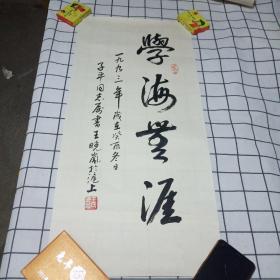 學海無涯
一九九三年歲在癸酉冬日
子平同志属書王曉嵐於滬上